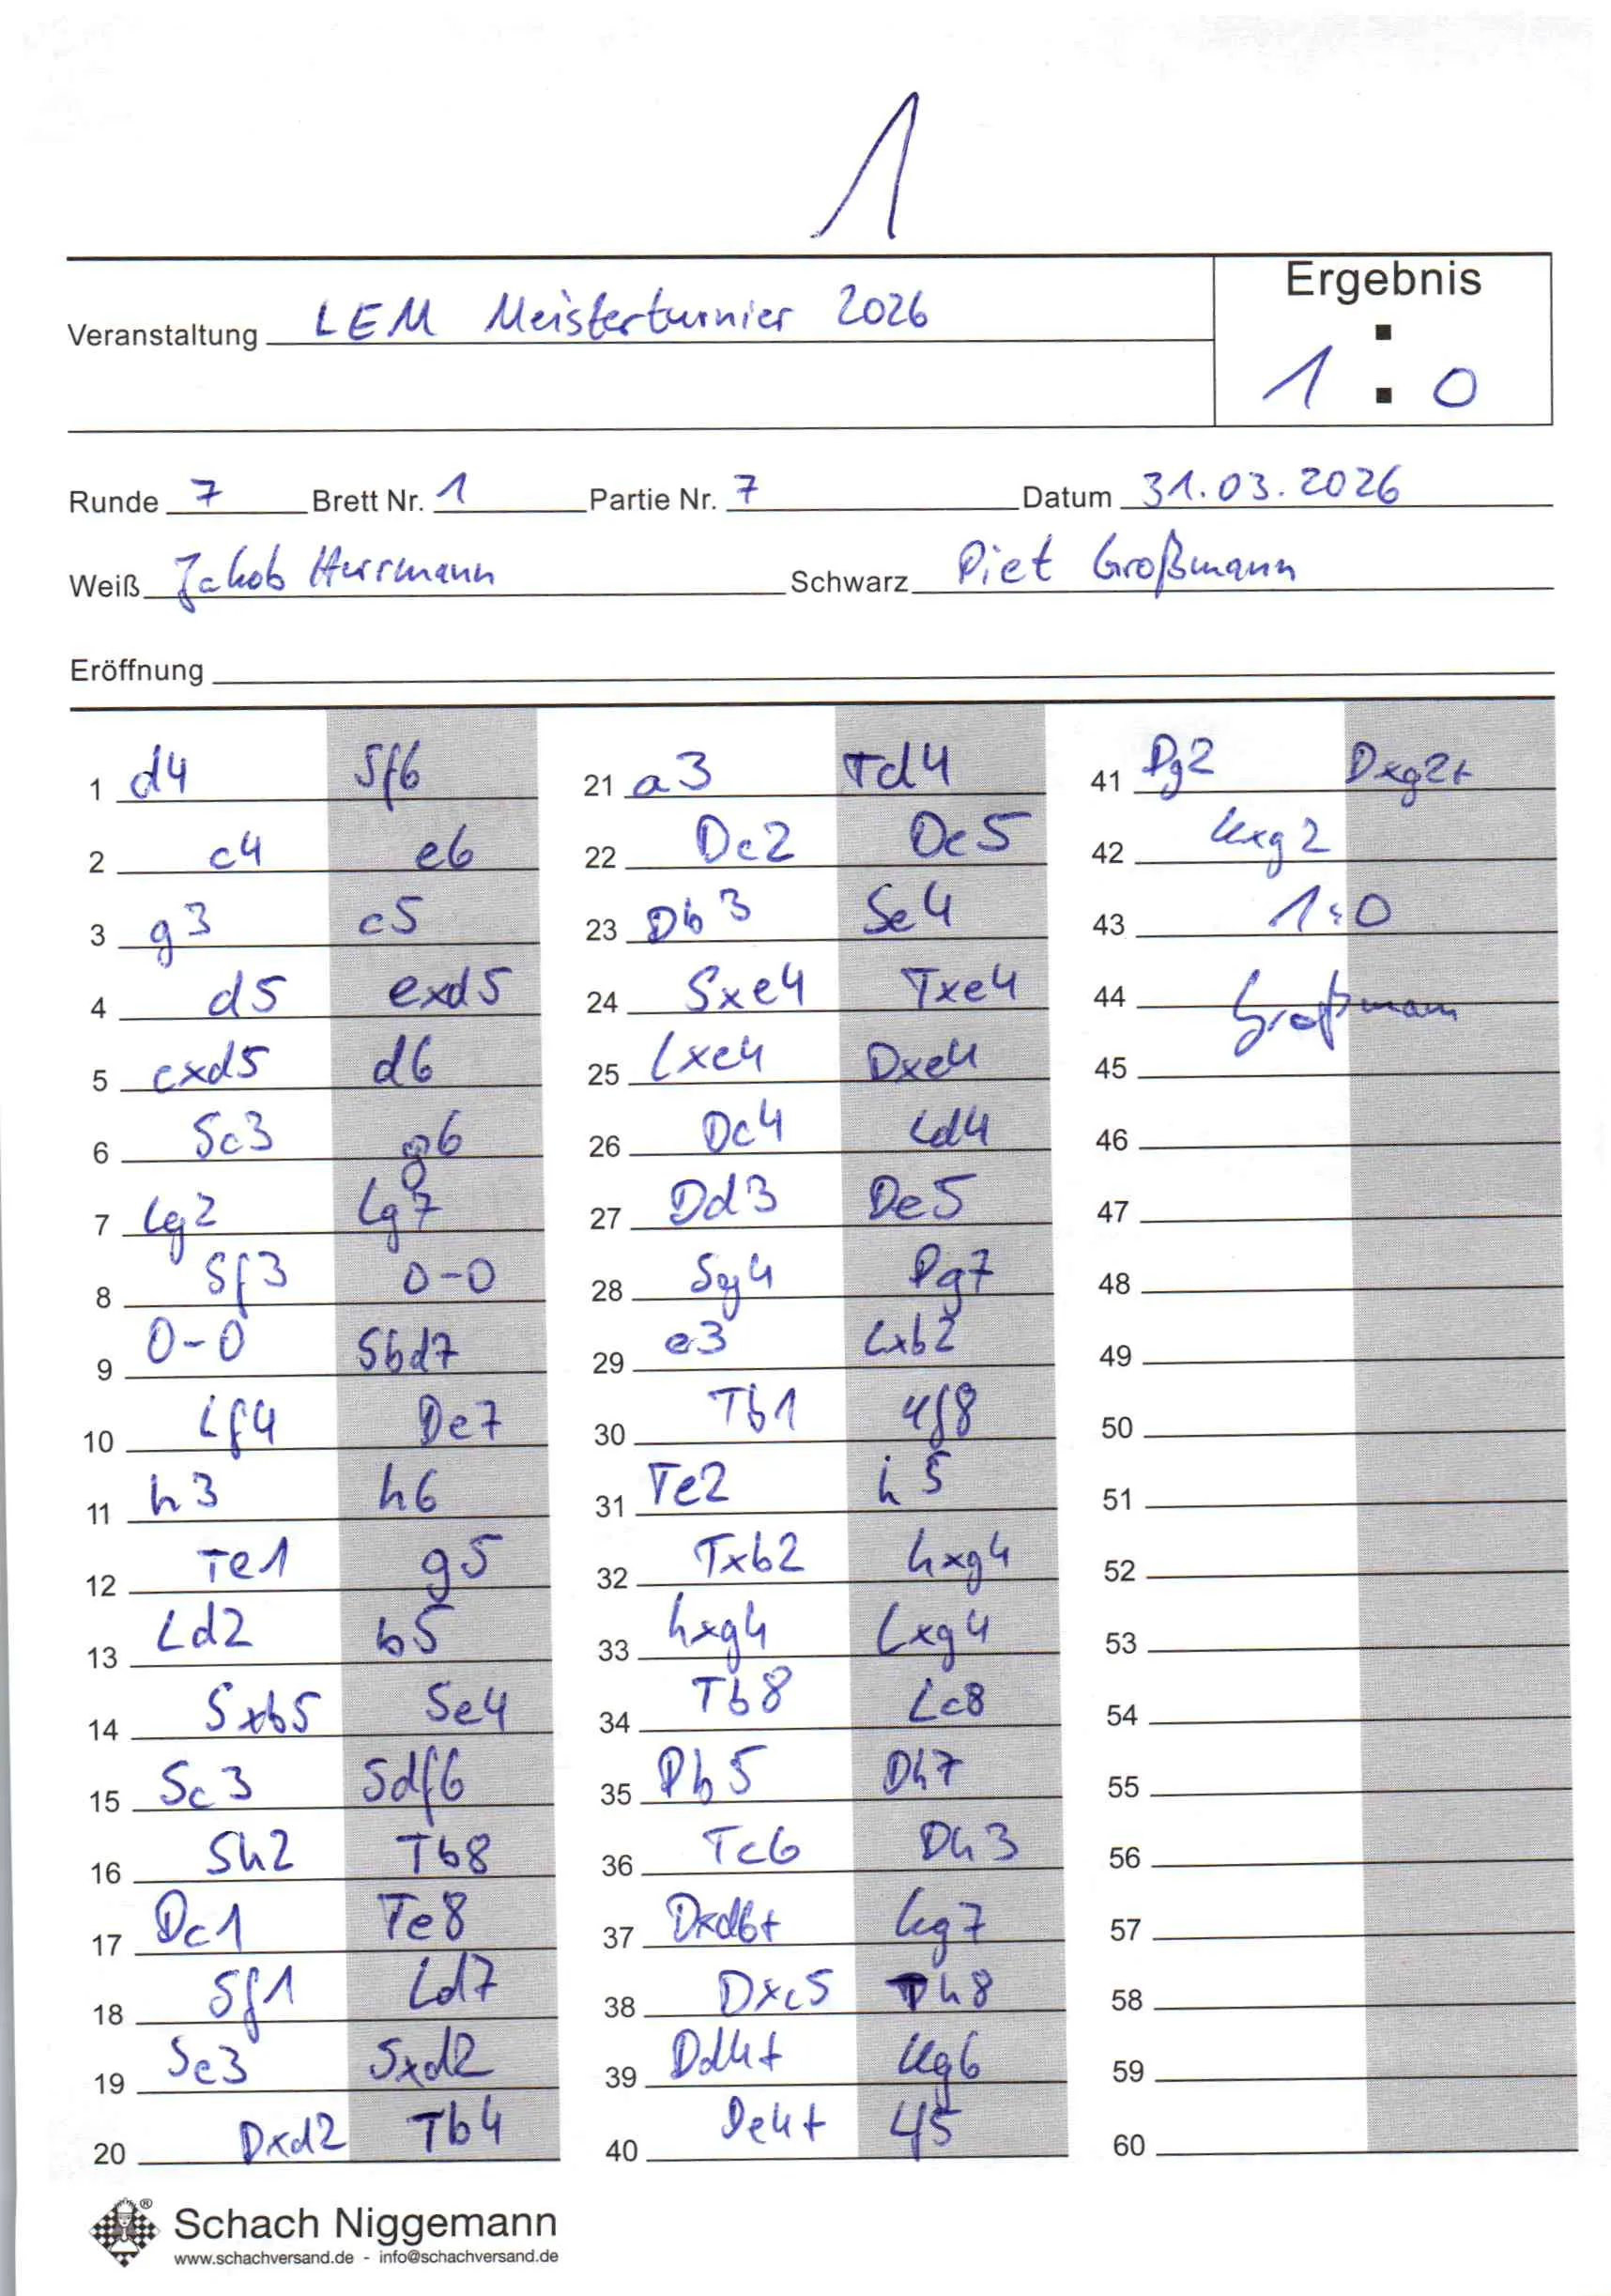 1
Ergebnis
Veranstaltung LEM Meisterturnier 2026
1 : 0
Runde 7 Brett Nr. 1 Partie Nr. 7 Datum 31.03.2026
Weiß Jakob Herrmann Schwarz Piet Großmann
Eröffnung
1 d4 Sf6
2 c4 e6
3 g3 c5
4 d5 exd5
5 cxd5 d6
6 Sc3 g6
7 Lg2 Lg7
8 Sf3 0-0
9 0-0 Sbd7
10 Lf4 De7
11 h3 h6
12 Te1 g5
13 Ld2 b5
14 Sxb5 Se4
15 Sc3 Sdf6
16 Sh2 Tb8
17 Dc1 Te8
18 Sf1 Ld7
19 Se3 Sxd2
20 Dxd2 Tb4
21 a3 Td4
22 Dc2 De5
23 Db3 Se4
24 Sxe4 Txe4
25 Lxe4 Dxe4
26 Dc4 Ld4
27 Dd3 De5
28 Sg4 Dg7
29 e3 Lxb2
30 Tb1 Kf8
31 Te2 h5
32 Txb2 hxg4
33 hxg4 Lxg4
34 Tb8 Lc8
35 Db5 Dh7
36 Tc6 Dh3
37 Dxd6+ Kg7
38 Dxc5 Th8
39 Dd4+ Kg6
40 De4+ f5
41 Dg2 Dxg2+
42 Kxg2
43 1:0
44 Großmann
45
46
47
48
49
50
51
52
53
54
55
56
57
58
59
60
Schach Niggemann
www.schachversand.de - info@schachversand.de